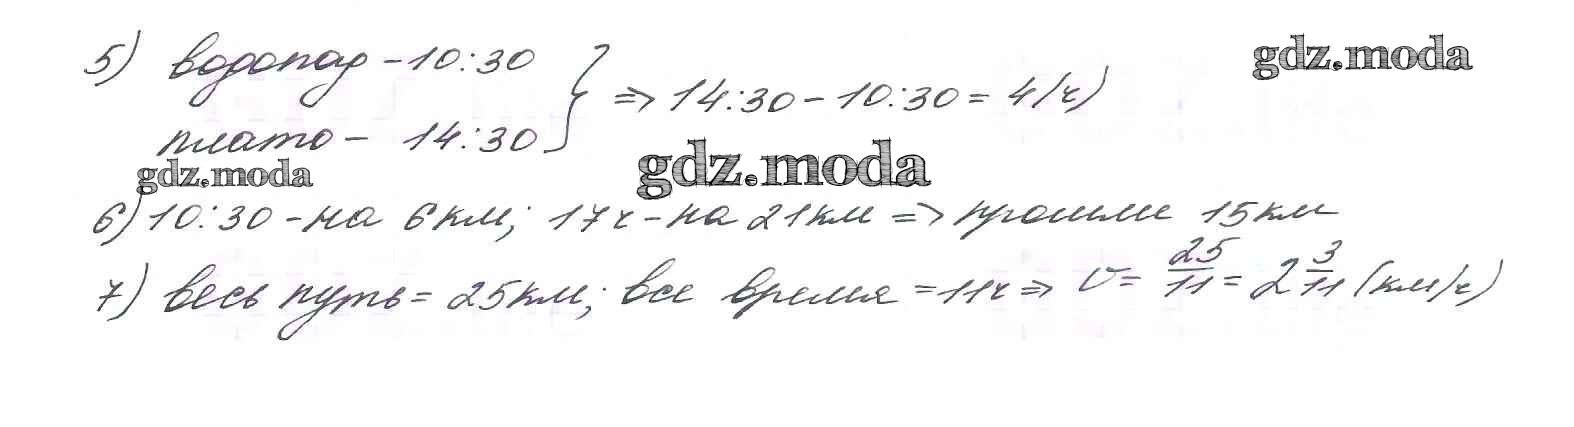 5) водопад - 10:30
плато - 14:30 } => 14:30 - 10:30 = 4 (ч)
gdz.moda
gdz.moda
gdz.moda
6) 10:30 - на 6 км; 17ч - на 21 км => прошли 15 км
7) весь путь = 25 км; все время = 11ч => v = 25/11 = 2 3/11 (км/ч)